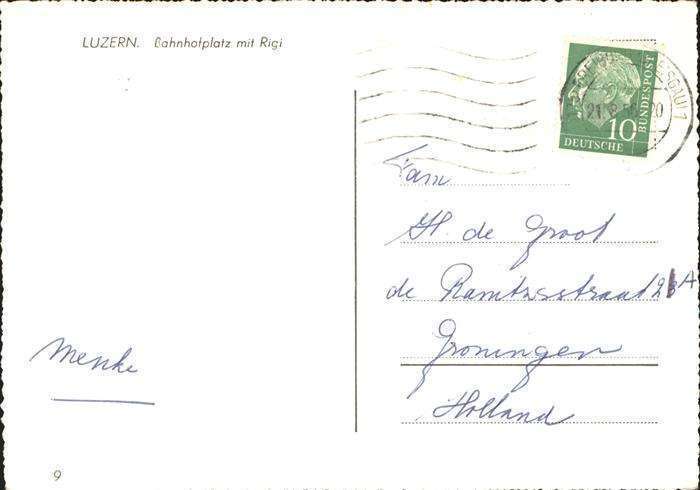 LUZERN. Bahnhofplatz mit Rigi
DEUTSCHE
BUNDESPOST
10
Fam
H. de Groot
de Ramitzsstraat
Groningen
Holland
Menke
9